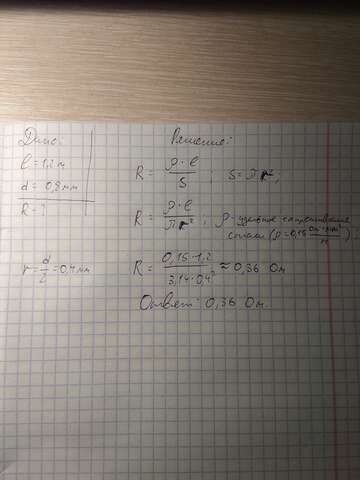 Дано:
l = 1,2 м
d = 0,8 мм
R - ?
r = d/2 = 0,4 мм
Решение:
R = ρ·l/S ; S = πr²;
R = ρ·l/πr² ; ρ - удельное сопротивление
стали (ρ = 0,15 Ом·мм²/м);
R = 0,15·1,2/3,14·0,4² ≈ 0,36 Ом
Ответ: 0,36 Ом